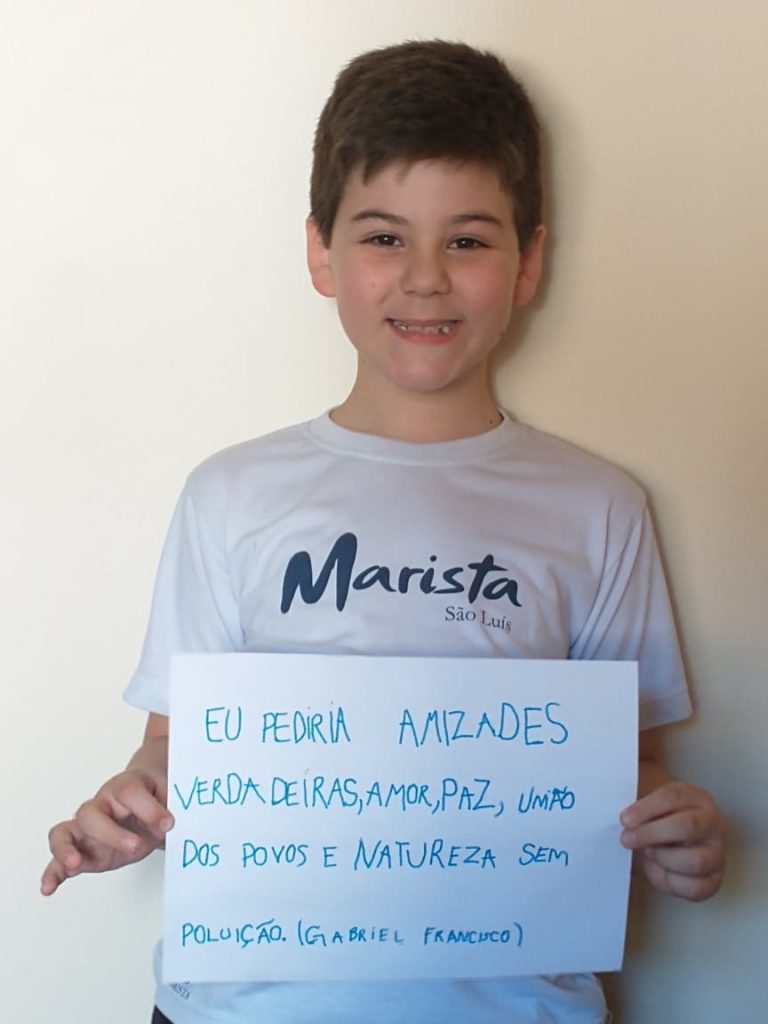 Marista
São Luís
EU PEDIRIA AMIZADES
VERDADEIRAS, AMOR, PAZ, UNIÃO
DOS POVOS E NATUREZA SEM
POLUIÇÃO. (GABRIEL FRANCISCO)
MARISTA